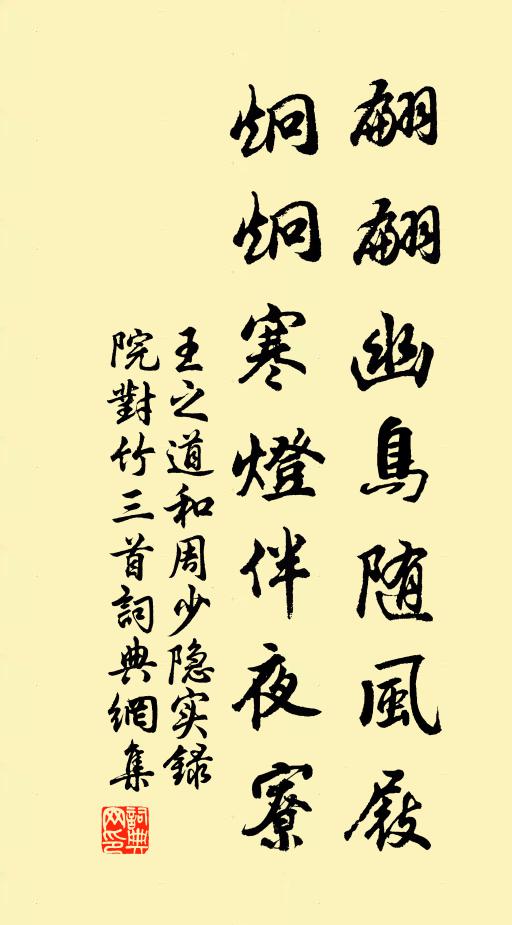 翩翩幽鳥随風屐
炯炯寒燈伴夜寮
王之道和周少隐实録
院對竹三首詞典網集
詞典网印